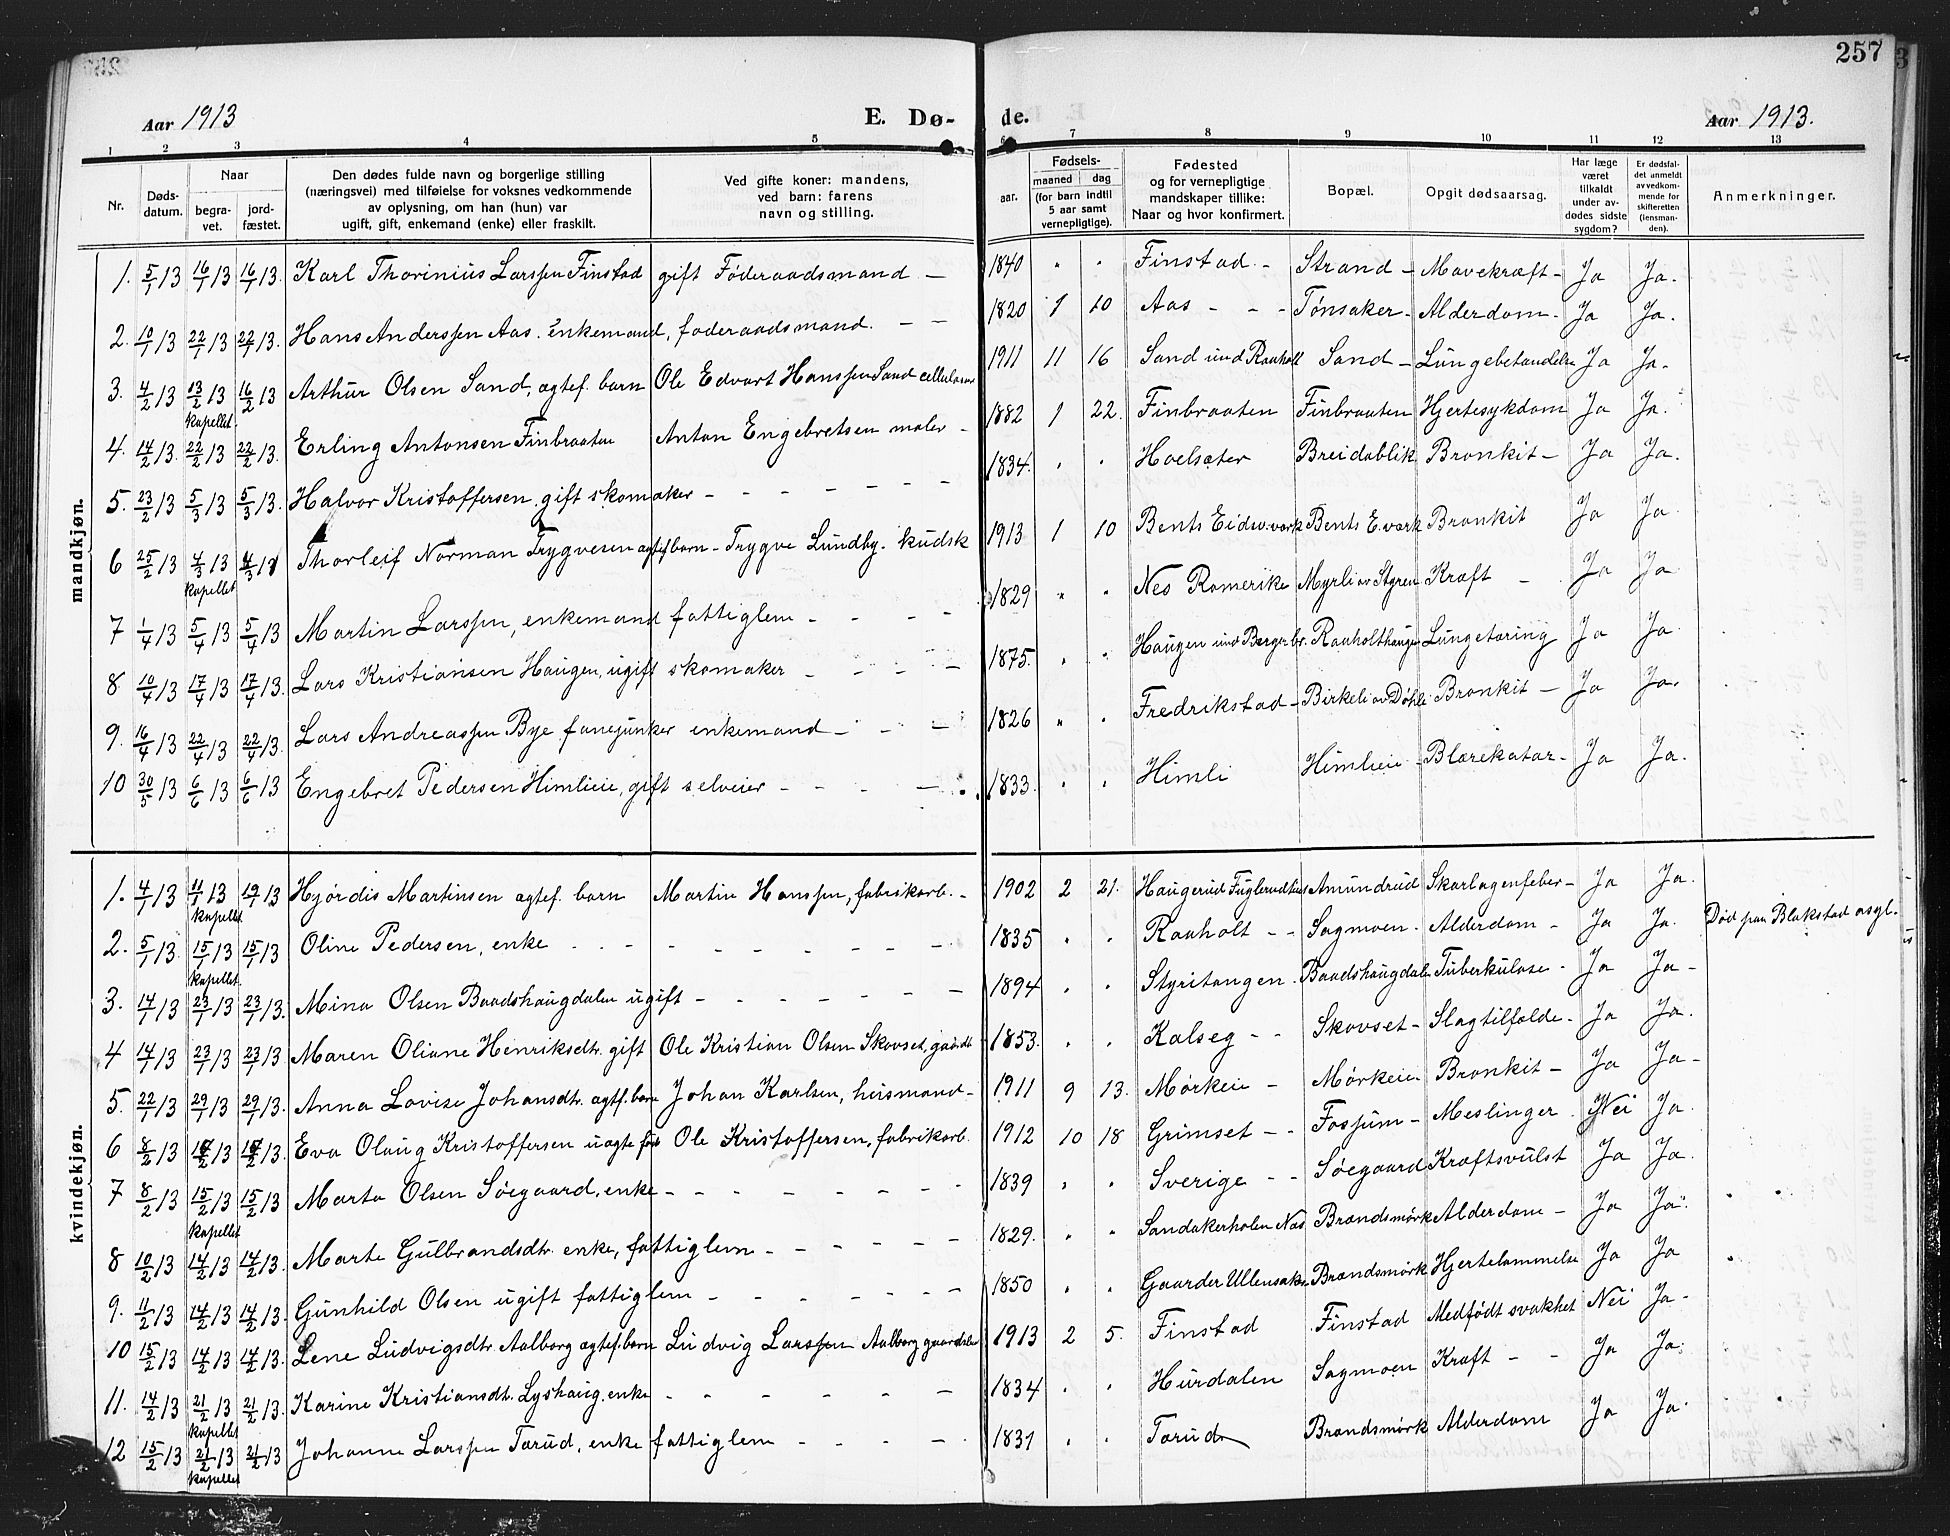 257
Aar 1913
E. Dø-
de.
Aar 1913.
1 2 3 4 5 6 7 8 9 10 11 12 13
Nr.
Døds-
datum.
Naar
begra-
vet.
jord-
fæstet.
Den dødes fulde navn og borgerlige stilling
(næringsvei) med tilføielse for voksnes vedkommende
av oplysning, om han (hun) var
ugift, gift, enkemand (enke) eller fraskilt.
Ved gifte koner: mandens,
ved barn: farens
navn og stilling.
aar.
Fødsels-
maaned dag
(for barn indtil
5 aar samt
vernepligtige).
Fødested
og for vernepligtige
mandskaper tillike:
Naar og hvor konfirmert.
Bopæl.
Opgit dødsaarsag.
Har læge
været
tilkaldt
under av-
dødes sidste
sygdom?
Er dødsfal-
det anmeldt
av vedkom-
mende for
skifteretten
(lensman-
den).
Anmerkninger.
mandkjøn.
1. 5/1 13 16/1 13 16/1 13. Karl Thorinius Larssen Finstad gift Føderaadsmand — 1840 " " Finstad - Strand - Mavekræft - Ja Ja.
2. 10/1 13 22/1 13 22/1 13. Hans Anderssen Aas. enkemand, føderaadsmand. — — 1820 1 10 Aas - - - Tønsaker - Alderdom - Ja Ja.
3. 4/2 13 13/2 13 16/2 13 Arthur Olsen Sand, ægtef. barn Ole Edvart Hanssen Sand 1911 11 16 Sand und Raaholt Sand - Lungebetændelse Ja Ja.
kapellet.
4. 14/2 13. 22/2 13 22/2 13. Erling Antonsen Finbraaten Anton Engebretsen maler - 1882 1 22. Finbraaten Finbraaten Hjertesykdom Ja Ja.
5. 23/2 13 5/3 13 5/3 13. Halvor Kristoffersen gift skomaker - - - - - - 1834. " " Hoelsæter Breidablik Bronkit - Ja Ja.
6 25/2 13 4/3 13 4/3 1 Thorleif Norman Trygvesen ægtef barn - Trygve Lundby. kudsk 1913 1 10 Bents Eidsv. værk Bents E. værk Bronkit Ja Ja.
kapellet
7 1/4 13 5/4 13 5/4 13 Martin Larssen, enkemand fattiglem - - - - 1829 " " Nes Romerike Myrli av Styren Kræft - Ja Ja
8 10/4 13 17/4 13 17/4 13. Lars Kristiansen Haugen, ugift skomaker - - - - 1875. " " Haugen und Raaholthaugen Lungetæring Ja Ja
9. 16/4 13 22/4 13 22/4 13. Lars Andreassen Bye fanejunker enkemand - - - - 1826 " " Fredrikstad - Birkeli av Døhli Bronkit - Ja Ja.
10 30/5 13 6/6 13 6/6 13 Engebret Pedersen Himlieie, gift selveier - - - - 1833. " " Himli Himlieie - Blærekatar - Ja Ja.
kvindekjøn.
1. 4/1 13 11/1 13 19/1 13 Hjørdis Martinsen ægtef. barn Martin Hanssen, fabrikarb. - 1902 2 21. Haugerud Amundrud Skarlagenfeber - Ja Ja.
kapellet
2. 5/1 13. 15/1 13 15/1 13 Oline Pedersen, enke - - - - - - - - 1835 " " Raaholt - - Sagmoen. Alderdom - Ja Ja. Død paa Blakstad asyl.
kapellet.
3. 14/1 13 23/1 13 23/1 13. Mina Olsen Baadshaugdalen ugift - - - - - - - 1894 " " Styritangen. Baadshaugdalen Tuberkulose - Ja Ja -
4 14/1 13 23/1 13 23/1 13. Maren Oliane Henriksdtr. gift Ole Kristian Olsen Skovset, gaardbr 1853. " " Kalseg - - Skovset - Slagtilfælde - Ja Ja.
5. 22/1 13 29/1 13 29/1 13. Anna Lovise Johansdtr. ægtf. barn Johan Karlsen, husmand - 1911 9 13. Mørkeie - Mørkeie Bronkit - Ja Ja -
6 8/2 13 13 13. Eva Olaug Kristoffersen uægte fød Ole Kristoffersen, fabrikarb. 1912 10 18 Grimset - - Fossum - Meslinger. Nei Ja.
7 8/2 13 15/2 13 15/2 13 Marta Olsen Søegaard, enke - - - - - - - 1839 " " Sverige - - Søegaard Kræftsvulst Ja Ja.
kapellet
8 10/2 13 14/2 13 14/2 13. Marte Gulbrandsdtr. enke, fattiglem - - - - - - 1829. " " Sandakerholen Næs Brændsmørk Alderdom - Ja Ja.
9. 11/2 13 14/2 13 14/2 13. Gunhild Olsen ugift fattiglem - - - - - - - 1850 " " Gaarder Ullensaker Brændsmørk Hjertelammelse Ja Ja
10 15/2 13 14/2 13 14/2 13. Lene Ludvigsdtr. Aalborg ægtef. barn Ludvig Larssen Aalborg 1913 2 5. Finstad Finstad Medfødt svakhet Nei Ja -
11. 14/2 13 21/2 13 21/2 13. Karine Kristiansdt. Lyshaug. enke - - - - - - - 1834 " " Hurdalen Sagmoen Kræft - - Ja Ja.
kapellet
12 15/2 13 21/2 13 21/2 13 Johanne Larssen Tærud, enke fattiglem - - - - 1831 " " Tærud Brændsmørk Alderdom Ja Ja.
kapellet